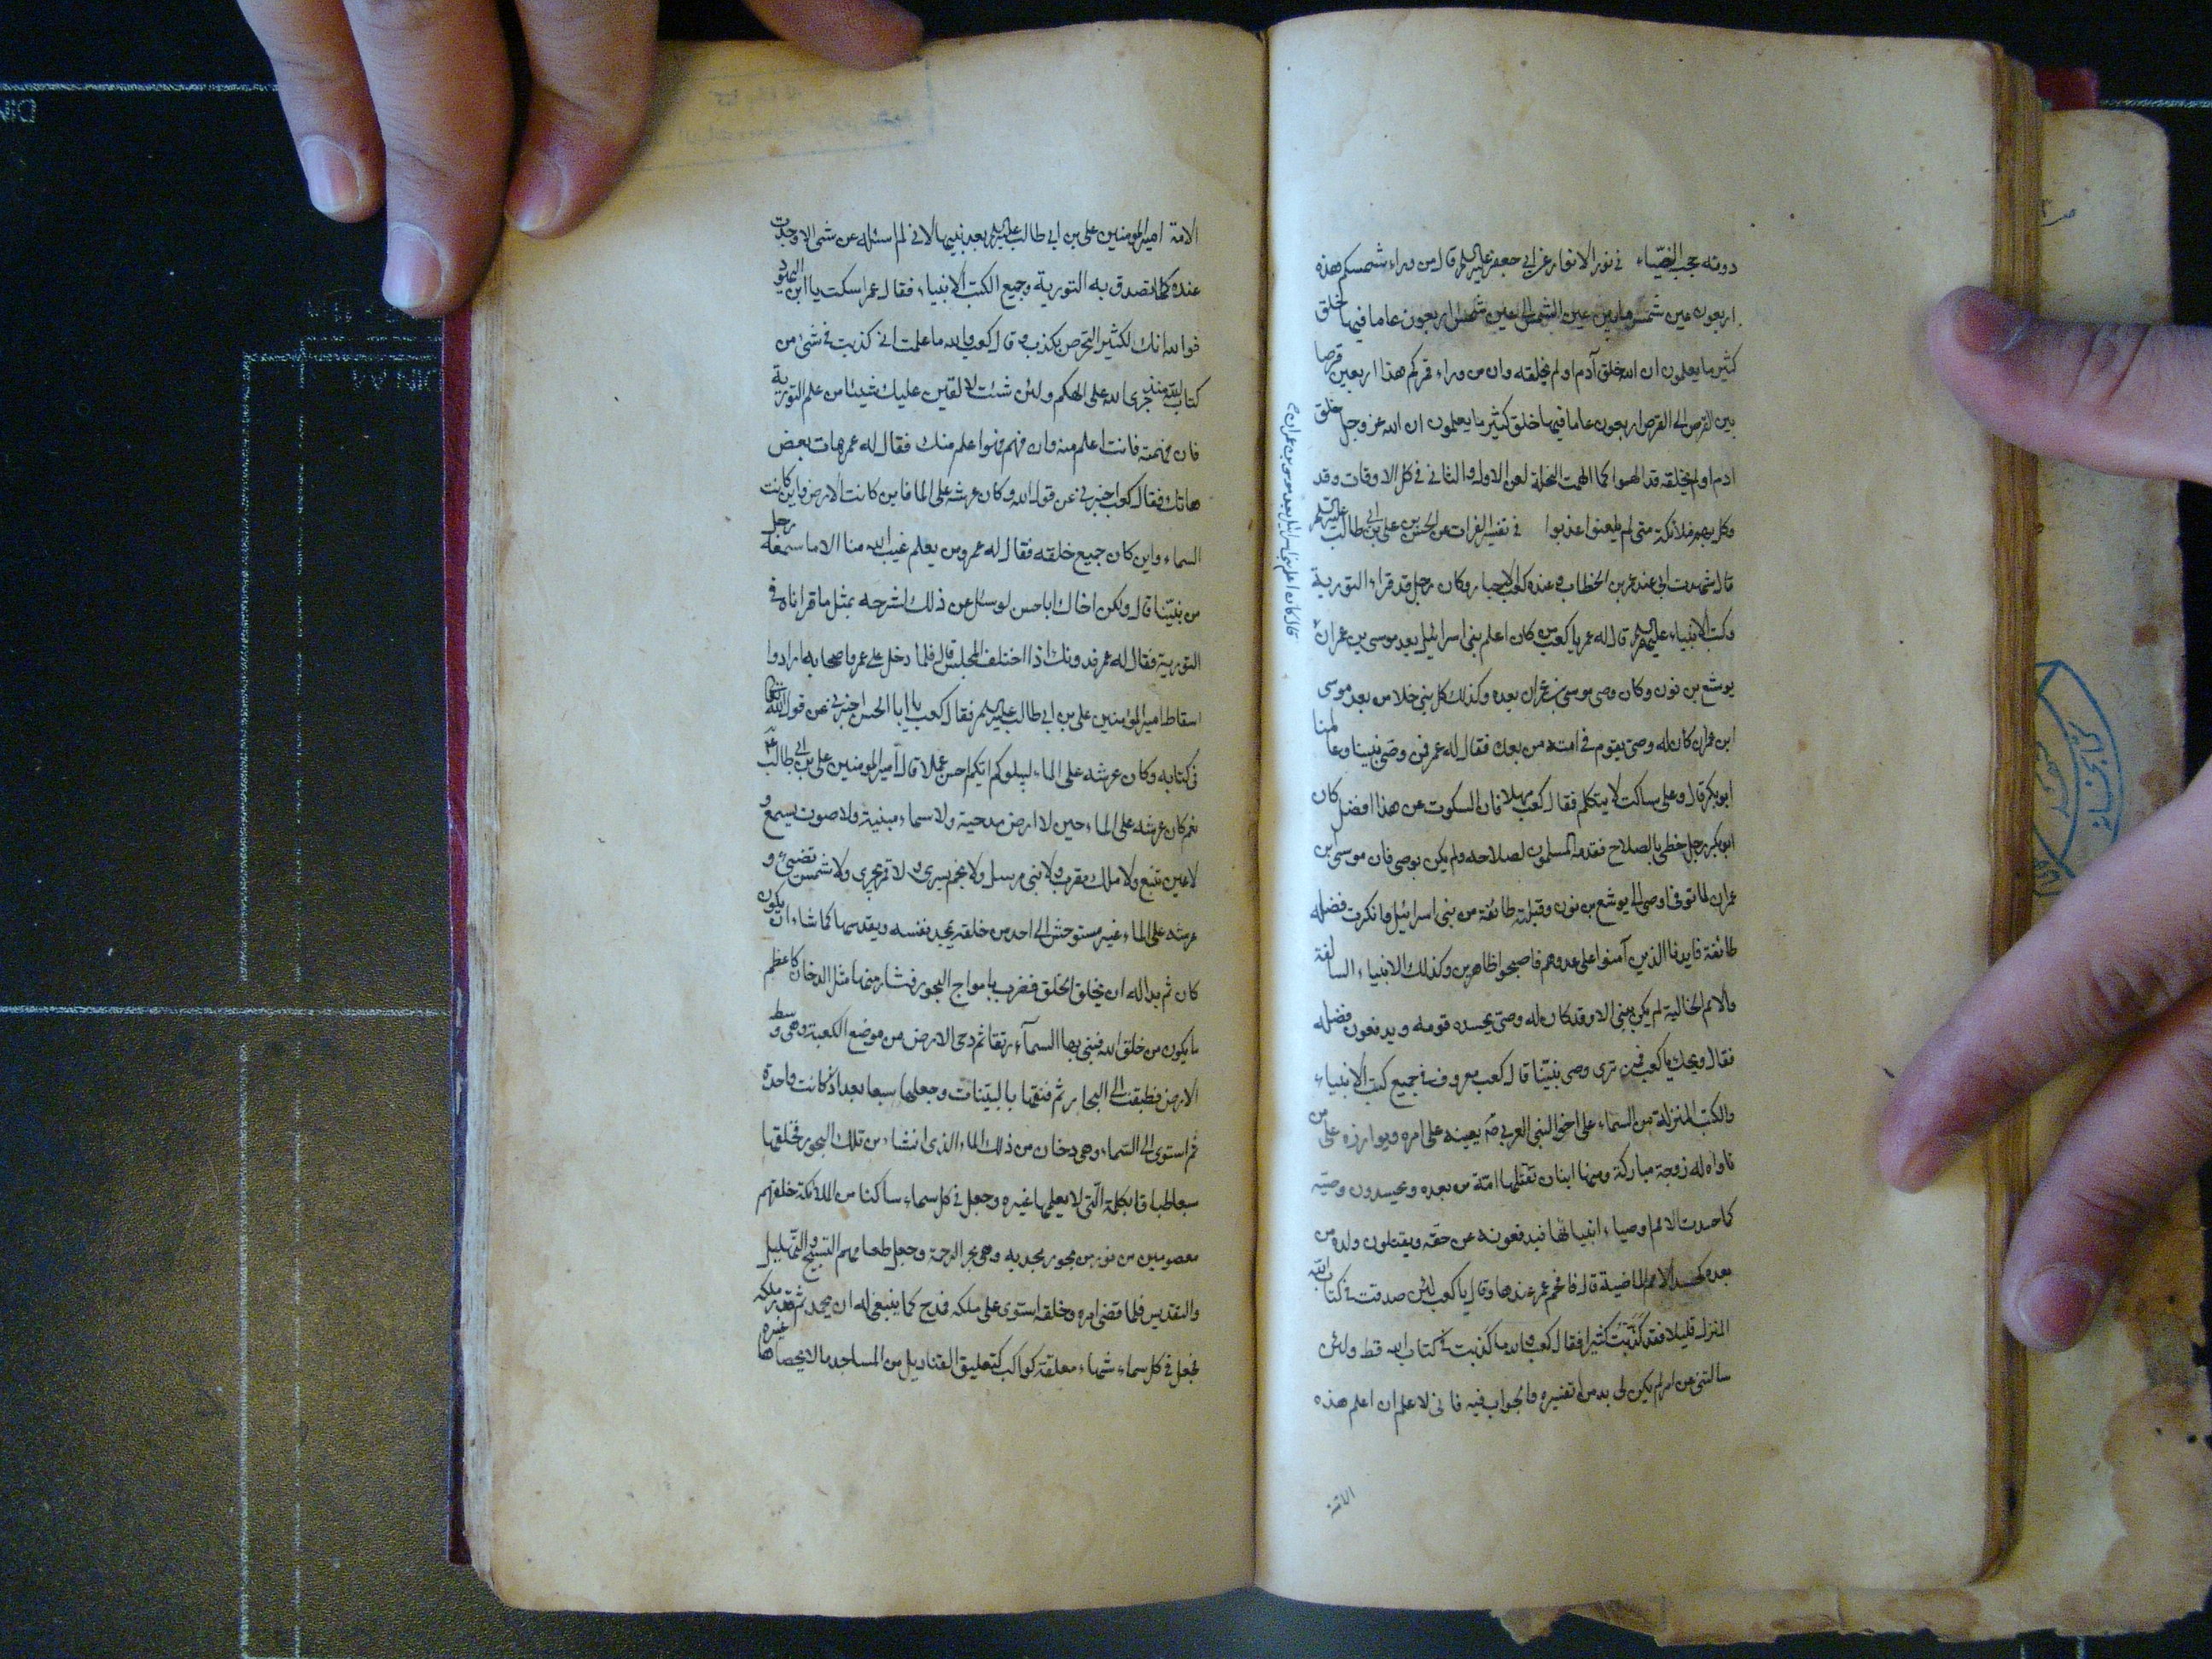 دونه حجب الضياء في نور الانوار عن ابي جعفر عليه السلم قال من وراء شمسكم هذه
اربعون عين شمس ما بين عين الشمس الى عين شمس اربعون عاما فيها خلق
كثير ما يعلمون ان الله خلق آدم او لم يخلقه وان من وراء قمركم هذا اربعين قرصا
بين القرص الى القرص اربعون عاما فيها خلق كثير ما يعلمون ان الله عز وجل خلق
ادم او لم يخلقه قد الهموا كما الهمت النحلة لعن الاول والثاني في كل الاوقات وقد
وكل بهم ملائكة متى لم يلعنوا عذبوا في تفسير الفرات عن الحسن بن علي بن ابي طالب عليه السلم
قال شهدت ابي عند عمر بن الخطاب وعنده كعب الاحبار وكان رجل قد قراء التورية
وكتب الانبياء عليهم السلم قال له عمر يا كعب من كان اعلم بني اسرائيل بعد موسى بن عمران
قال كان اعلم بني اسرائيل بعد موسى بن عمران
يوشع بن نون وكان وصي موسى بن عمران بعده وكذلك كل نبي خلا من بعد موسى
ابن عمران كان له وصي يقوم في امته من بعده فقال له عمر فمن وصي نبينا وعالمنا
ابو بكر قال وعلي ساكت لا يتكلم فقال كعب مهلا فان السكوت عن هذا افضل كان
ابو بكر رجل حظي بالصلاح فقدمه المسلمون لصلاحه ولم يكن بوصي فان موسى بن
عمران لما توفى اوصى الى يوشع بن نون وقبلته طائفة من بني اسرائيل وانكرت فضله
طائفة فايدنا الذين آمنوا على عدوهم فاصبحوا ظاهرين وكذلك الانبياء السالفة
والامم الخالية لم يكن نبي الا وقد كان له وصي يحسده قومه ويدفعون فضله
فقال ويحك يا كعب فمن ترى وصي نبينا قال كعب معروف في جميع كتب الانبياء
والكتب المنزلة من السماء علي اخو النبي العربي ص يعينه على امره ويوازره على من
ناواه له زوجة مباركة ومنها ابنان تقتلهما امته من بعده ويحسدون وصيه
كما حسدت الامم اوصياء انبيائها فيدفعونه عن حقه ويقتلون ولده من
بعده كحسد الامم الماضية قال فافحم عمر عندها وقال يا كعب لئن صدقت في كتاب الله
المنزل قليلا فقد كذبت كثيرا فقال كعب والله ما كذبت في كتاب الله قط ولئن
سالتني عن امر لم يكن لي بد من تفسيره والجواب فيه فاني لاعلم ان اعلم هذه
الامة
الامة امير المومنين علي بن ابي طالب عليه السلم بعد نبيها لاني لم اسئله عن شئ الا وجدت
عنده علما تصدق به التورية وجميع الكتب الانبياء فقال عمر اسكت يا ابن اليهود
فوالله انك لكثير التخرص بكذب قال كعب والله ما علمت اني كذبت في شئ من
كتاب الله منذ جرى لله على الحكم ولئن شئت لالقين عليك شيئا من علم التورية
فان فهمته فانت اعلم منه وان فهم فهوا علم منك فقال له عمر هات بعض
هاتك فقال كعب اخبرني عن قول الله وكان عرشه على الما فاين كانت الارض واين كانت
السماء واين كان جميع خلقه فقال له عمر ومن يعلم غيب الله منا الا ما سمعه رجل
من نبينا قال ولكن اخاك ابا حسن لو سئل عن ذلك لشرحه بمثل ما قراناه في
التورية فقال له عمر فدونك اذا اختلف المجلس قال فلما دخل على عمر واصحابه ارادوا
اسقاط امير المؤمنين علي بن ابي طالب عليه السلم فقال كعب يا ابا الحسن اخبرني عن قول الله تعالى
في كتابه وكان عرشه على الماء ليبلوكم ايكم احسن عملا قال امير المومنين علي بن ابي طالب ع
نعم كان عرشه على الماء حين لا ارض مدحية ولا سماء مبنية ولا صوت يسمع و
لا عين تنبع ولا ملك مقرب ولا نبي مرسل ولا نجم يسري ولا قمر يجري ولا شمس تضيئ و
عرشه على الماء غير مستوحش الى احد من خلقه يمجد نفسه ويقدسها كما شاء ان يكون
كان ثم بدا له ان يخلق الخلق فضرب بامواج البحور فثار منها مثل الدخان كاعظم
ما يكون من خلق الله فبنى بها السماء رتقا ثم دحى الارض من موضع الكعبة وهي وسط
الارض فطبقت الى البحار ثم فتقها بالبنيات وجعلها سبعا بعد اذ كانت واحدة
ثم استوى الى السماء وهي دخان من ذلك الماء الذي انشاء من تلك البحور فخلقها
سبعا طباقا بكلمة التي لا يعلمها غيره وجعل في كل سماء ساكنا من الملائكة خلقهم
معصومين من نور من بحور مجدبه وهو بحر الرحمة وجعل طعامهم التسبيح والتهليل
والتقديس فلما قضى امره وخلقه استوى على ملكه فمدح كما ينبغي له ان يحمد ثم قدر ملكه
فجعل في كل سماء شهبا معلقة كواكب كتعليق القناديل من المساجد ما لا يحصاها غيره